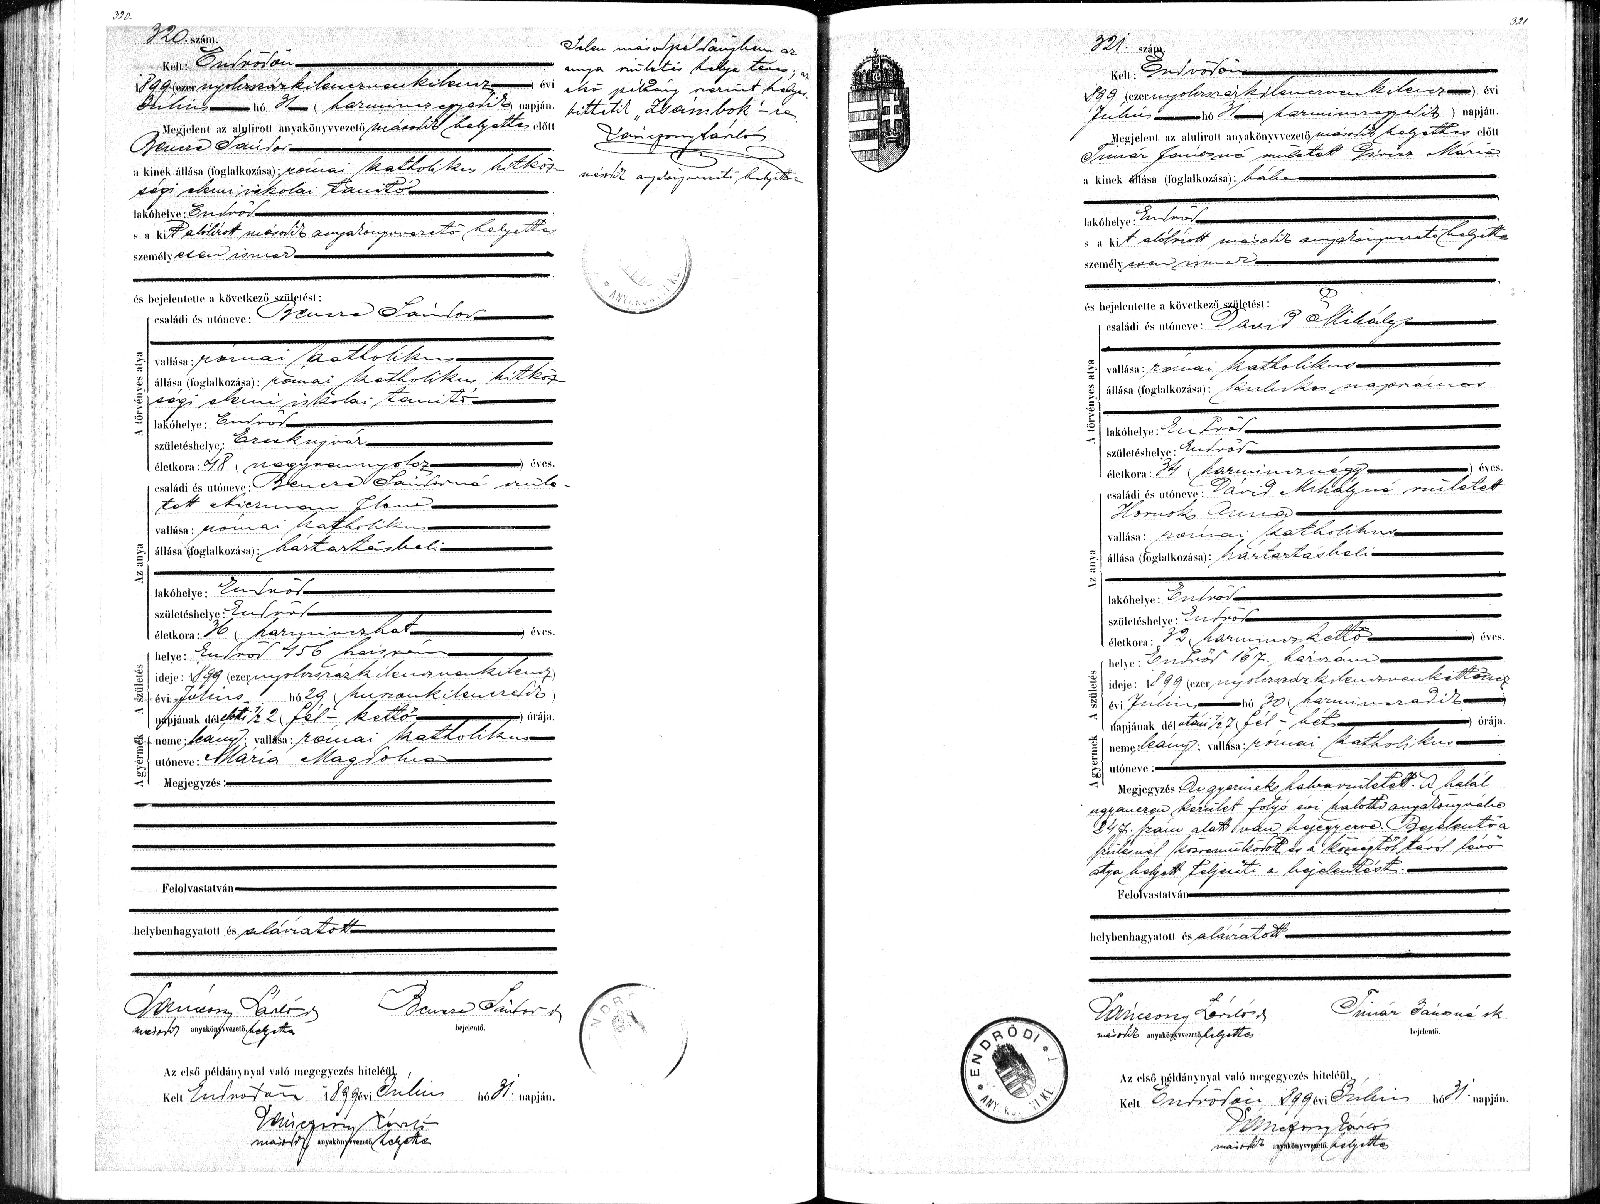 320.
320. szám.
Kelt: Endrődön
1899 (ezernyolczszázkilenczvenkilencz) évi
Július hó 31 (harminczegyedik) napján.
Megjelent az alulirott anyakönyvvezető második helyettes előtt
Bencze Sándor
a kinek állása (foglalkozása): római katholikus hitköz-
ségi elemi iskolai tanitó
lakóhelye: Endrőd
s a kit alólirott második anyakönyvvezető helyettes
személyesen ismer
és bejelentette a következő születést:
A törvényes atya
családi és utóneve: Bencze Sándor
vallása: római katholikus
állása (foglalkozása): római katholikus hitköz-
ségi elemi iskolai tanitó
lakóhelye: Endrőd
születéshelye: Érsekujvár
életkora: 48 (negyvennyolcz) éves.
Az anya
családi és utóneve: Bencze Sándorné szüle-
tett Ilona
vallása: római katholikus
állása (foglalkozása): háztartásbeli
lakóhelye: Endrőd
születéshelye: Endrőd
életkora: 36 (harminczhat) éves.
A születés
helye: Endrőd 456 házszám
ideje: 1899 (ezernyolczszázkilenczvenkilencz)
évi Július hó 29 (huszonkilenczedik)
napjának délelőtti ½2 (fél-kettő) órája.
A gyermek
neme: leány; vallása: római katholikus
utóneve: Mária Magdolna
Megjegyzés:
Felolvastatván
helybenhagyatott és aláiratott
László
Bencze Sándor
második anyakönyvvezető helyettes
bejelentő.
Az első példánynyal való megegyezés hiteléül.
Kelt Endrődön 1899 évi Július hó 31. napján.
László
második anyakönyvvezető helyettes
Jelen másodpéldányban az
anya születési helye téves, az
első példány szerint helyes-
bittetik „Zsámbok"-ra
László
második anyakönyvvezető helyettes
ANYAKÖNYVI KE
ENDR
321
321. szám.
Kelt: Endrődön
1899 (ezernyolczszázkilenczvenkilencz) évi
Július hó 31 (harminczegyedik) napján.
Megjelent az alulirott anyakönyvvezető második helyettes előtt
Timár Jánosné született Mária
a kinek állása (foglalkozása): bába
lakóhelye: Endrőd
s a kit alólirott második anyakönyvvezető helyettes
személyesen ismer
és bejelentette a következő születést:
A törvényes atya
családi és utóneve: Dávid Mihály
vallása: római katholikus
állása (foglalkozása): földmives napszámos
lakóhelye: Endrőd
születéshelye: Endrőd
életkora: 34 (harmincznégy) éves.
Az anya
családi és utóneve: Dávid Mihályné született
Hornok Anna
vallása: római katholikus
állása (foglalkozása): háztartásbeli
lakóhelye: Endrőd
születéshelye: Endrőd
életkora: 32 (harminczkettő) éves.
A születés
helye: Endrőd 167. házszám
ideje: 1899 (ezernyolczszázkilenczvenkilencz
évi Július hó 30 (harminczadik)
napjának délutáni ½7 (fél-hét) órája.
A gyermek
neme: leány; vallása: római katholikus
utóneve:
Megjegyzés: A gyermek halva született. A halál
ugyanezen kerület folyó évi halotti anyakönyvébe
247. szám alatt van bejegyezve. Bejelentő a
szülésnél közreműködött és a községtől távol lévő
atya helyett teljesiti a bejelentést.
Felolvastatván
helybenhagyatott és aláiratott
László
Timár Jánosné
második anyakönyvvezető helyettes
bejelentő.
ENDRŐDI
ANYAKÖNYVI KE
Az első példánynyal való megegyezés hiteléül.
Kelt Endrődön 1899 évi Július hó 31. napján.
László
második anyakönyvvezető helyettes